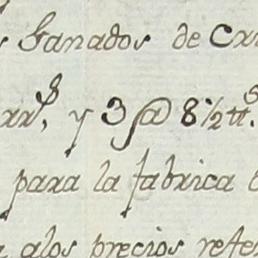 Ganados de
y 3 @ 8 1/2 tt.s
para la fabrica
alos precios